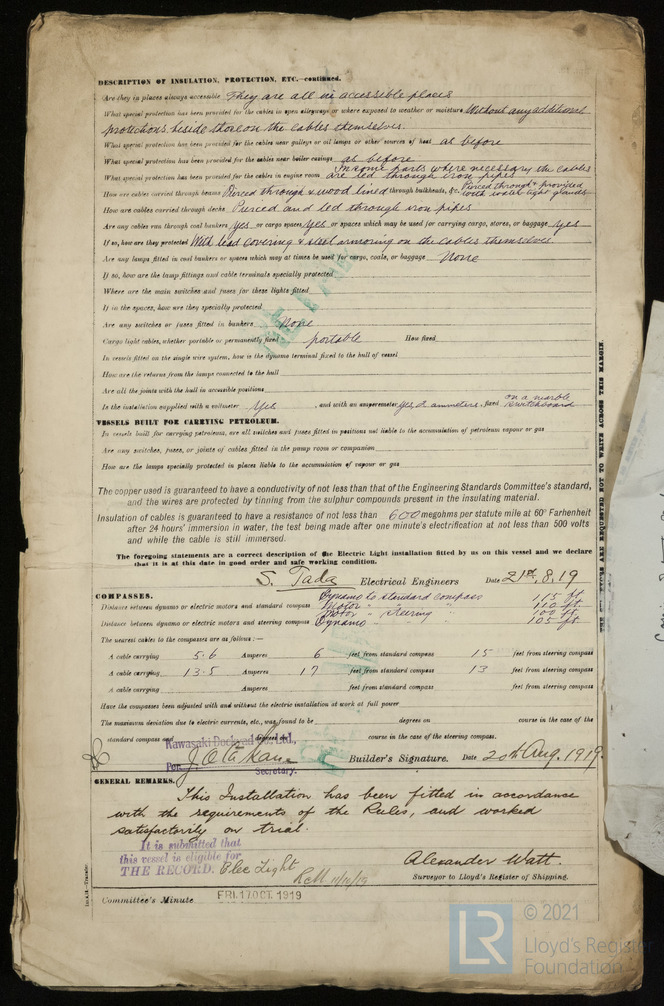 DESCRIPTION OF INSULATION, PROTECTION, ETC.—continued.
Are they in places always accessible They are all in accessible places
What special protection has been provided for the cables in open alleyways or where exposed to weather or moisture Without any additional
protections beside those on the cables themselves.
What special protection has been provided for the cables near galleys or oil lamps or other sources of heat as before
What special protection has been provided for the cables near boiler casings as before
In some parts where necessary the cables
What special protection has been provided for the cables in engine room are led through iron pipes
How are cables carried through beams Pierced through & wood lined through bulkheads, &c. Pierced through & provided with water tight glands
How are cables carried through decks Pierced and led through iron pipes
Are any cables run through coal bunkers yes or cargo spaces yes or spaces which may be used for carrying cargo, stores, or baggage yes
If so, how are they protected With lead covering & steel armoring on the cables themselves
Are any lamps fitted in coal bunkers or spaces which may at times be used for cargo, coals, or baggage None
If so, how are the lamp fittings and cable terminals specially protected
Where are the main switches and fuses for these lights fitted
If in the spaces, how are they specially protected
Are any switches or fuses fitted in bunkers None
Cargo light cables, whether portable or permanently fixed portable How fixed
In vessels fitted on the single wire system, how is the dynamo terminal fixed to the hull of vessel
How are the returns from the lamps connected to the hull
Are all the joints with the hull in accessible positions
Is the installation supplied with a voltmeter Yes, and with an amperemeter yes, 2 ammeters, fixed on a marble switchboard
VESSELS BUILT FOR CARRYING PETROLEUM.
In vessels built for carrying petroleum, are all switches and fuses fitted in positions not liable to the accumulation of petroleum vapour or gas
Are any switches, fuses, or joints of cables fitted in the pump room or companion
How are the lamps specially protected in places liable to the accumulation of vapour or gas
The copper used is guaranteed to have a conductivity of not less than that of the Engineering Standards Committee's standard,
and the wires are protected by tinning from the sulphur compounds present in the insulating material.
Insulation of cables is guaranteed to have a resistance of not less than 600 megohms per statute mile at 60° Farhenheit
after 24 hours' immersion in water, the test being made after one minute's electrification at not less than 500 volts
and while the cable is still immersed.
The foregoing statements are a correct description of the Electric Light installation fitted by us on this vessel and we declare
that it is at this date in good order and safe working condition.
S. Tada Electrical Engineers Date 21st, 8, 19
COMPASSES.
Dynamo to standard compass 115 ft
Distance between dynamo or electric motors and standard compass Motor " " " 110 ft.
Motor " steering " 100 ft.
Distance between dynamo or electric motors and steering compass Dynamo " " 105 ft.
The nearest cables to the compasses are as follows:—
A cable carrying 5·6 Amperes 6 feet from standard compass 15 feet from steering compass
A cable carrying 13·5 Amperes 17 feet from standard compass 13 feet from steering compass
A cable carrying Amperes feet from standard compass feet from steering compass
Have the compasses been adjusted with and without the electric installation at work at full power
The maximum deviation due to electric currents, etc., was found to be degrees on course in the case of the
standard compass and degrees on course in the case of the steering compass.
Kawasaki Dockyard Co., Ltd.,
Per Secretary. Builder's Signature. Date 20th Aug. 1919
GENERAL REMARKS.
This Installation has been fitted in accordance
with the requirements of the Rules, and worked
satisfactorily on trial.
It is submitted that
this vessel is eligible for
THE RECORD. Elec Light
Alexander Watt.
Surveyor to Lloyd's Register of Shipping.
Committee's Minute FRI. 17 OCT 1919
THE SURVEYORS ARE REQUESTED NOT TO WRITE ACROSS THIS MARGIN.
LR
© 2021
Lloyd's Register
Foundation